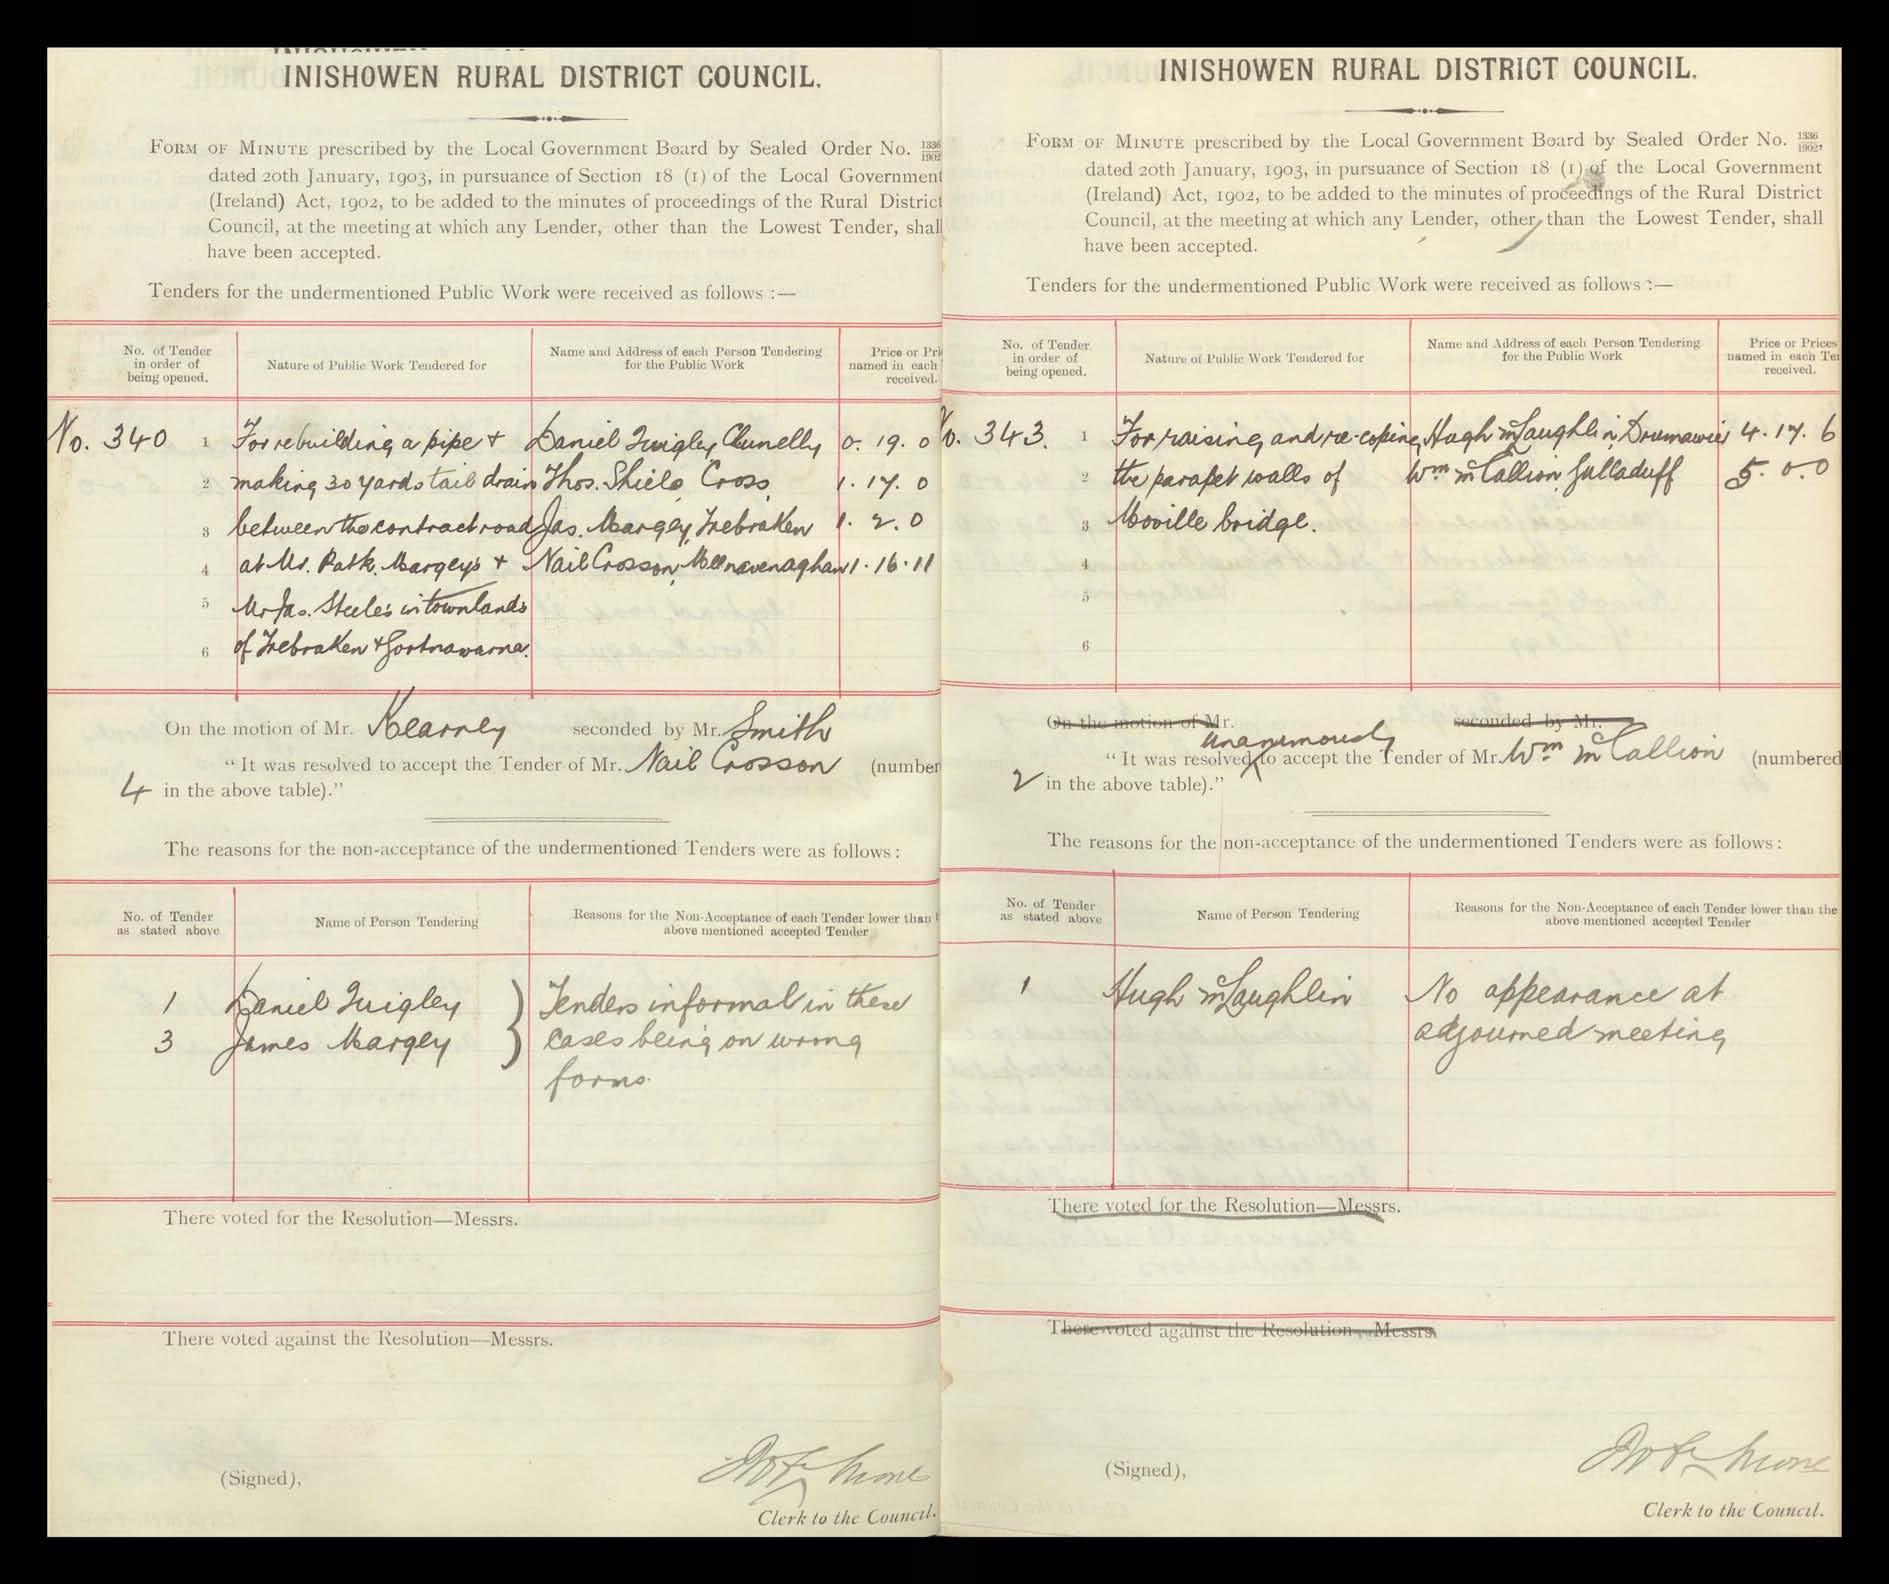 INISHOWEN RURAL DISTRICT COUNCIL.
FORM OF MINUTE prescribed by the Local Government Board by Sealed Order No. 1336/1902
dated 20th January, 1903, in pursuance of Section 18 (1) of the Local Government
(Ireland) Act, 1902, to be added to the minutes of proceedings of the Rural District
Council, at the meeting at which any Lender, other than the Lowest Tender, shall
have been accepted.
Tenders for the undermentioned Public Work were received as follows :—
No. of Tender
in order of
being opened.
Nature of Public Work Tendered for
Name and Address of each Person Tendering
for the Public Work
Price or Pri
named in each
received.
No. 340 1 For rebuilding a pipe + Daniel Quigley, Clunelly 0. 19. 0
2 making 30 yards tail drain Thos. Shiels, Cross, 1. 17. 0
3 between the contract road Jas. Margey, Trebraken 1. 2. 0
4 at Mr. Patk. Margeys + Nail Crosson, Meenavenaghan 1. 16. 11
5 Mr Jas. Steele's in townlands
6 of Trebraken + Gortnawarna.
On the motion of Mr. Kearney seconded by Mr. Smith
“ It was resolved to accept the Tender of Mr. Nail Crosson (number
4 in the above table).”
The reasons for the non-acceptance of the undermentioned Tenders were as follows :
No. of Tender
as stated above
Name of Person Tendering
Reasons for the Non-Acceptance of each Tender lower than t
above mentioned accepted Tender
1 Daniel Quigley } Tenders informal in these
3 James Margey cases being on wrong
forms.
There voted for the Resolution—Messrs.
There voted against the Resolution—Messrs.
(Signed),
Clerk to the Council.
INISHOWEN RURAL DISTRICT COUNCIL.
FORM OF MINUTE prescribed by the Local Government Board by Sealed Order No. 1336/1902,
dated 20th January, 1903, in pursuance of Section 18 (1) of the Local Government
(Ireland) Act, 1902, to be added to the minutes of proceedings of the Rural District
Council, at the meeting at which any Lender, other than the Lowest Tender, shall
have been accepted.
Tenders for the undermentioned Public Work were received as follows :—
No. of Tender
in order of
being opened.
Nature of Public Work Tendered for
Name and Address of each Person Tendering
for the Public Work
Price or Prices
named in each Te
received.
No. 343. 1 For raising and re-coping Hugh McLaughlin, Drumawier 4. 17. 6
2 the parapet walls of Wm McCallion, Gulladuff 5. 0. 0
3 Moville bridge.
4
5
6
On the motion of Mr. seconded by Mr.
unanimously
“ It was resolved to accept the Tender of Mr. Wm McCallion (numbered
2 in the above table).”
The reasons for the non-acceptance of the undermentioned Tenders were as follows :
No. of Tender
as stated above
Name of Person Tendering
Reasons for the Non-Acceptance of each Tender lower than the
above mentioned accepted Tender
1 Hugh McLaughlin No appearance at
adjourned meeting
There voted for the Resolution—Messrs.
There voted against the Resolution—Messrs.
(Signed),
Clerk to the Council.